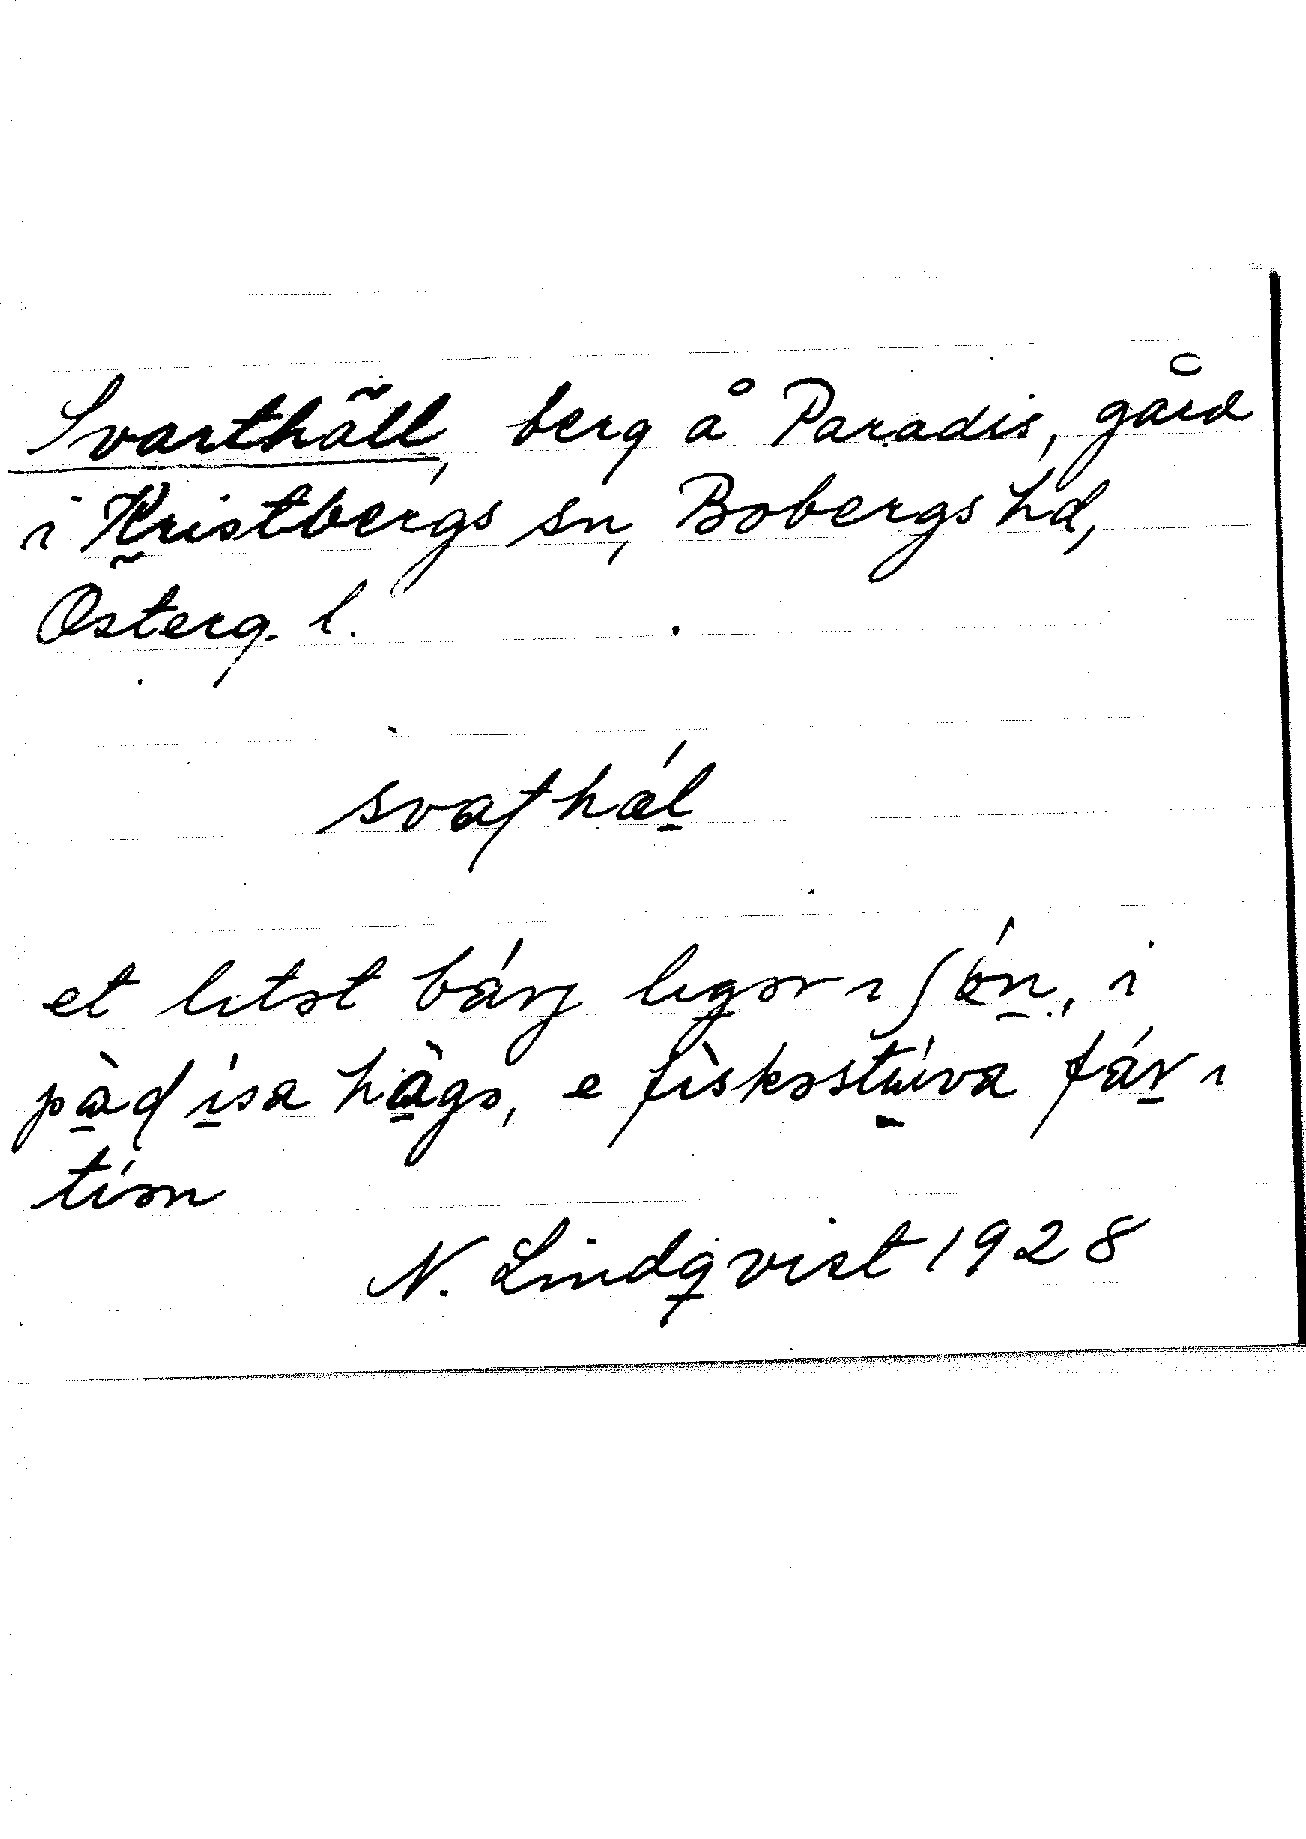 Svarthäll, berg å Paradis, gård
i Kristbergs sn, Bobergs hd,
Österg. l.
svaʈhǽl̠
et litət bárj ligər ı ʃǿn̠, i
pà̠ɖí̠sa hà̠gə, e fìskəstúva fár̠ ı
tíən
N. Lindqvist 1928